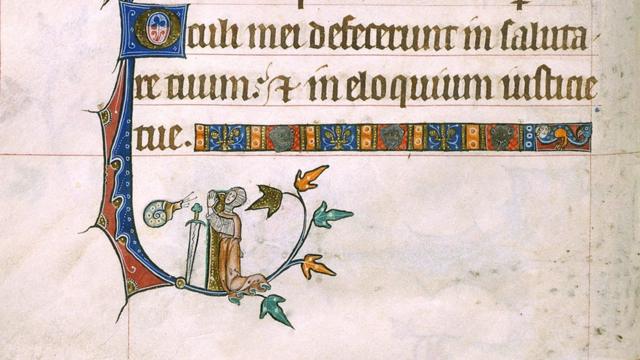 Oculi mei defecerunt in saluta
re tuum: ⁊ in eloquium iusticie
tue.